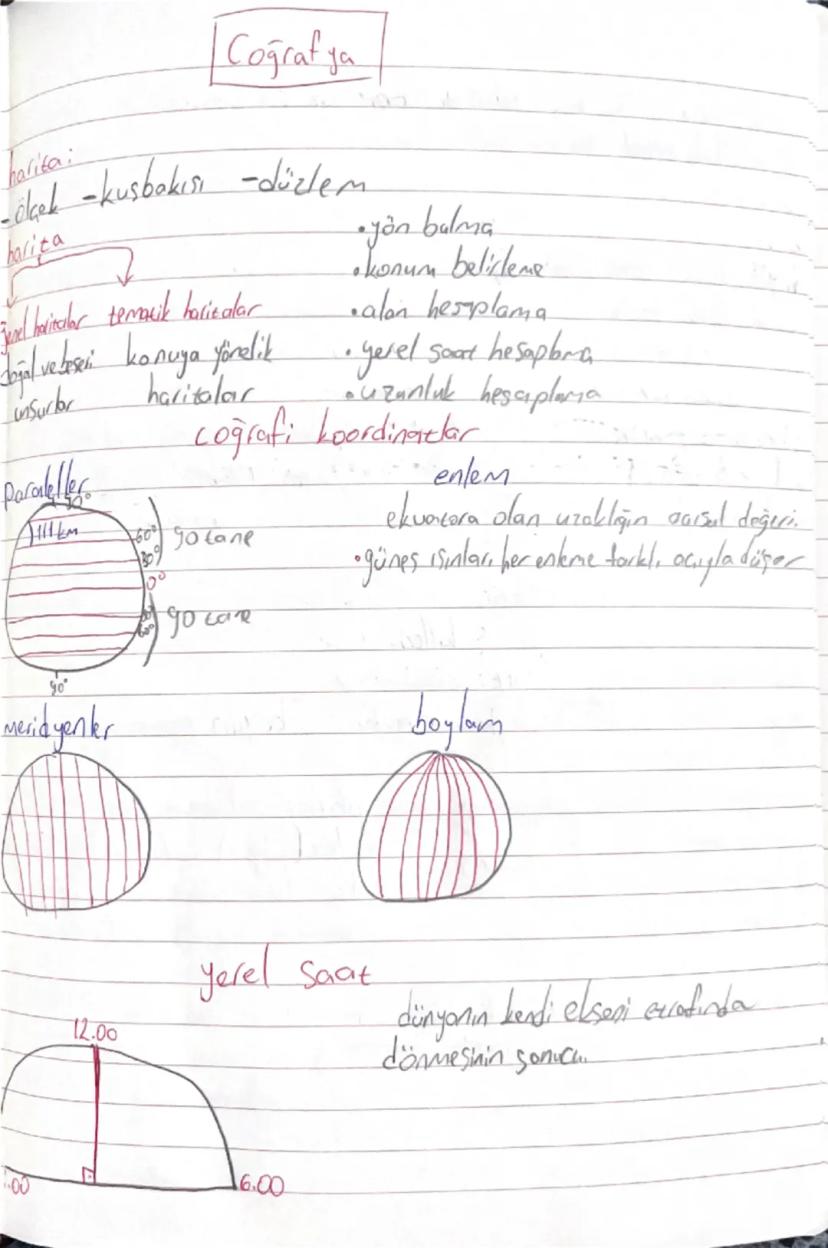 Coğrafya
harita:
-ölçek -kuşbakışı -düzlem
harita
genel haritalar tematik haritalar
doğal ve beşeri konuya yönelik
unsurlar haritalar
•yön bulma
•konum belirleme
•alan hesaplama
•yerel saat hesaplama
•uzunluk hesaplama
coğrafi koordinatlar
Paraleller
90°
111 km
60°
30°
90 tane
0°
30°
60°
90 tane
90°
enlem
ekvatora olan uzaklığın açısal değeri.
•güneş ışınları her enleme farklı açıyla düşer
meridyenler
boylam
yerel saat
12.00
.00
6.00
dünyanın kendi ekseni etrafında
dönmesinin sonucu